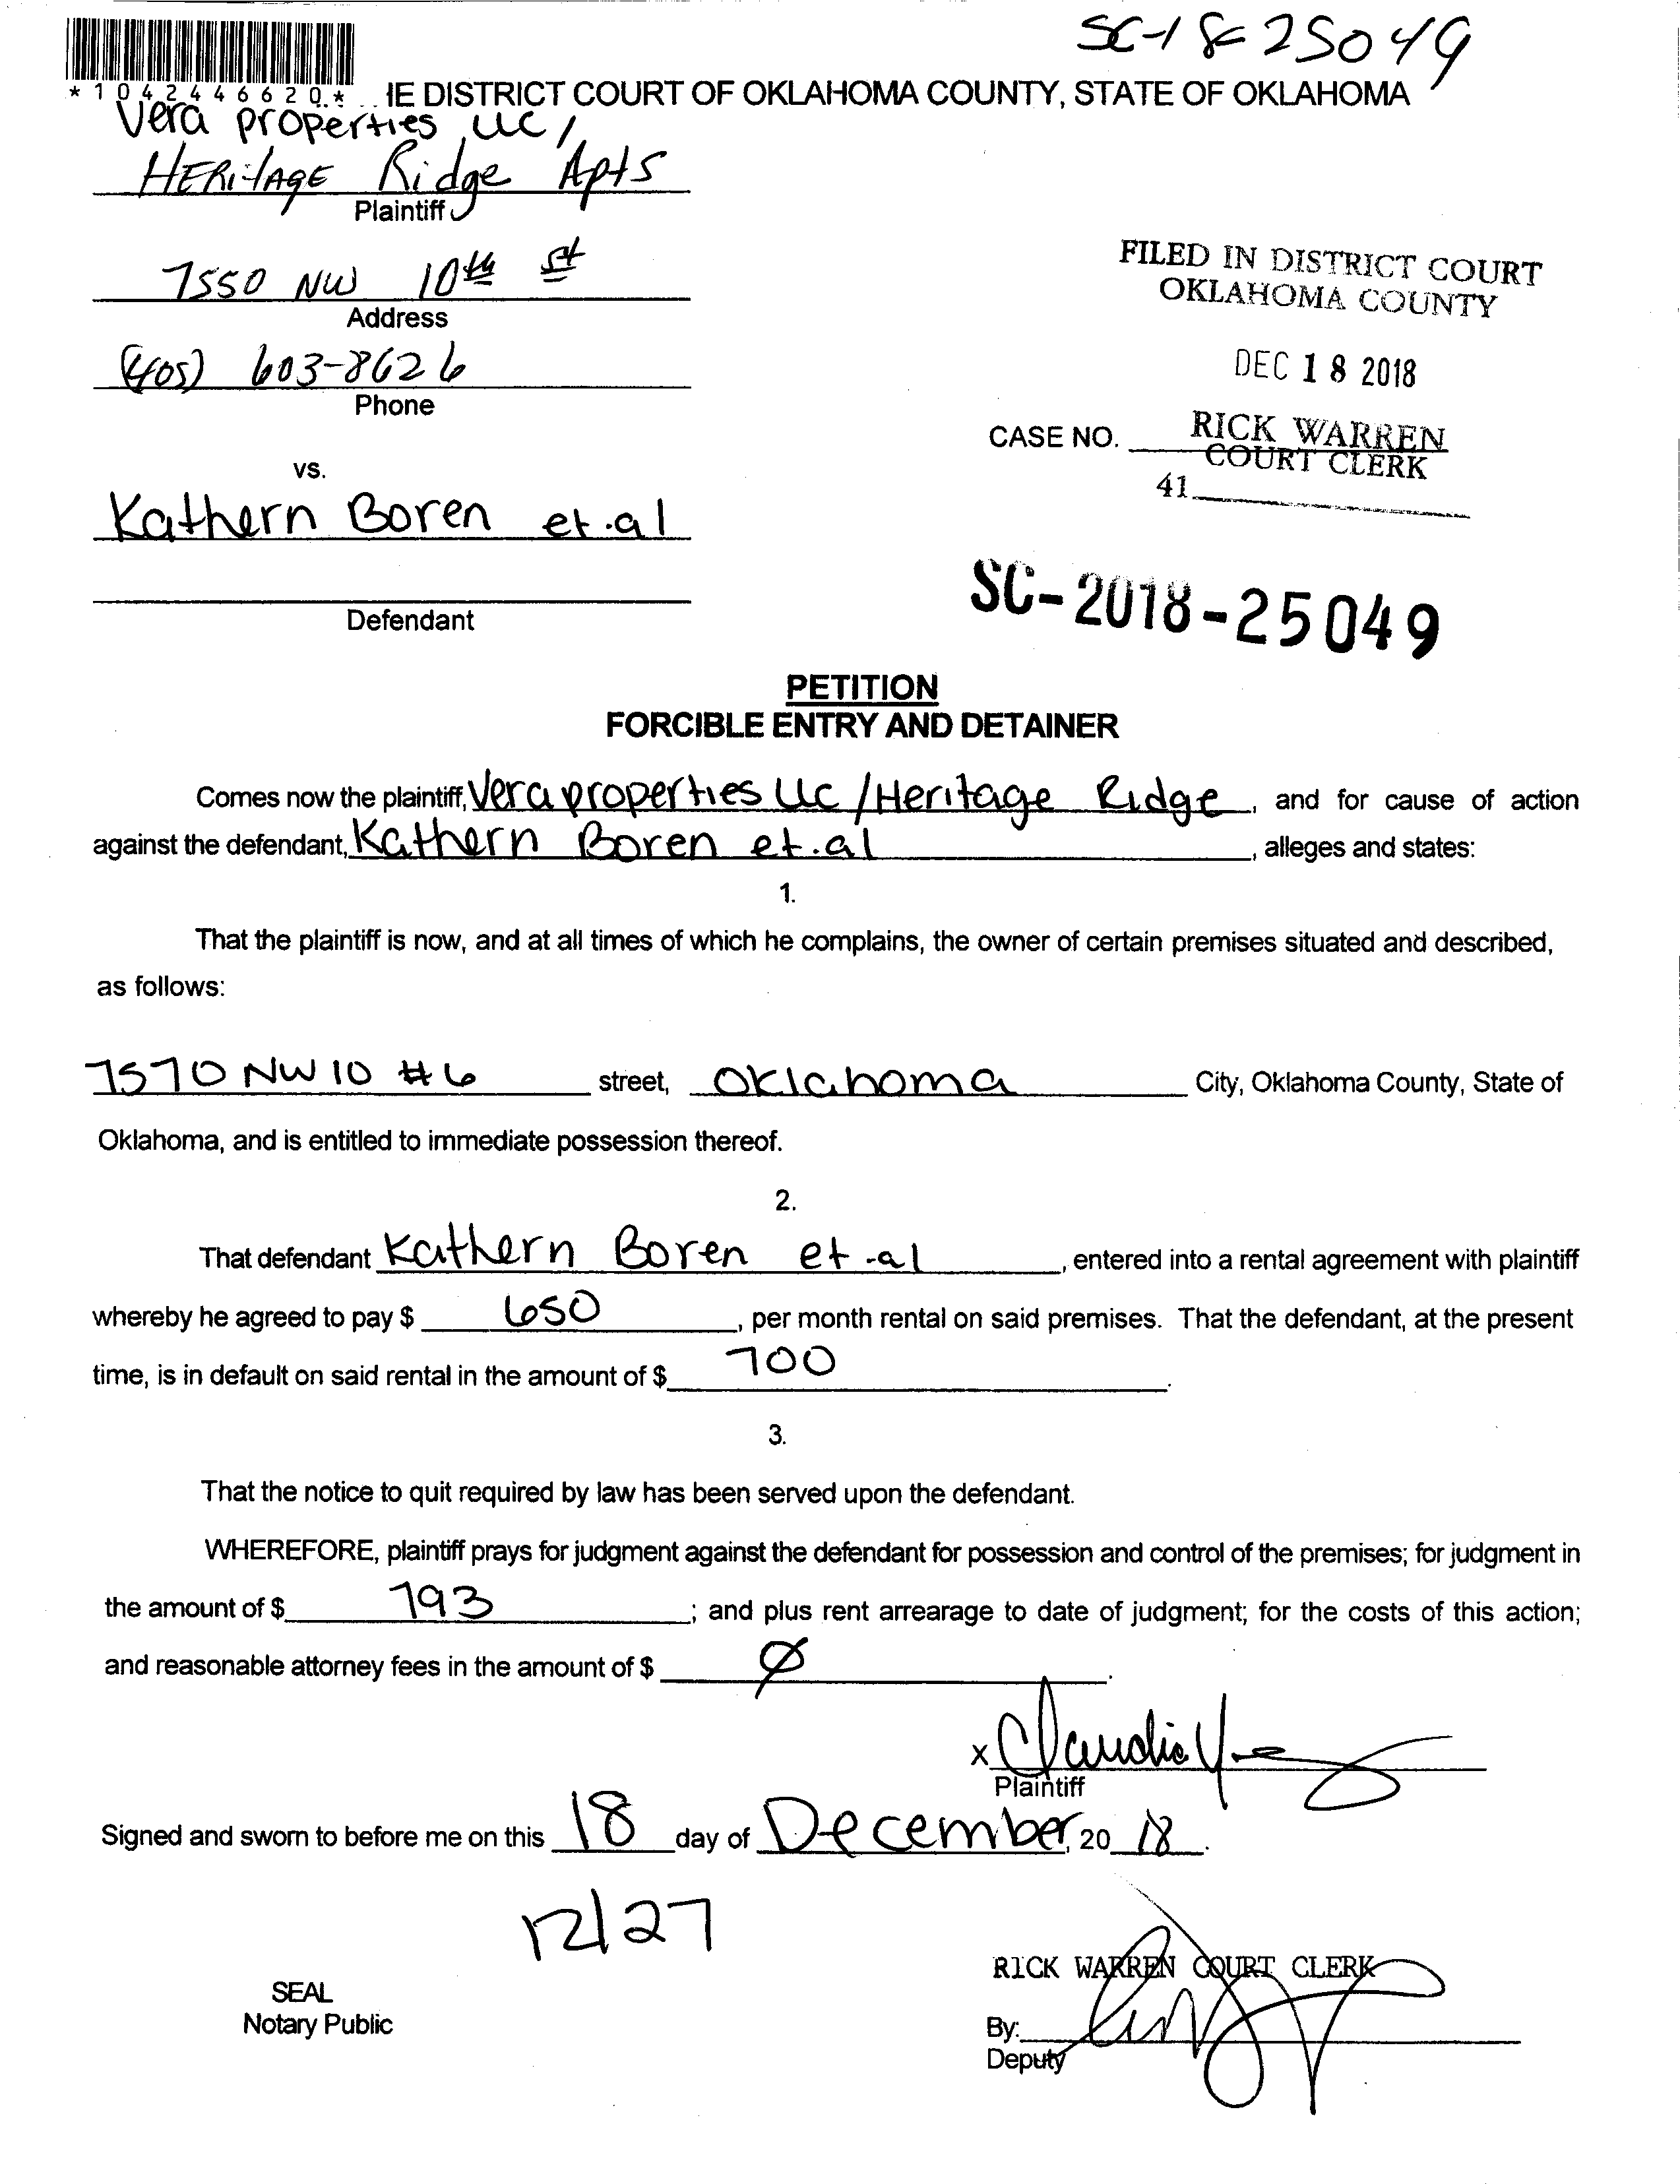 SC-18-25049
*1042446620*
IE DISTRICT COURT OF OKLAHOMA COUNTY, STATE OF OKLAHOMA
Vera properties LLC /
HERitAGE Ridge Apts
Plaintiff
7550 NW 10th st
Address
(405) 603-8626
Phone
FILED IN DISTRICT COURT
OKLAHOMA COUNTY
DEC 18 2018
RICK WARREN
COURT CLERK
CASE NO.
41
vs.
Kathern Boren et.al
Defendant
SC-2018-25049
PETITION
FORCIBLE ENTRY AND DETAINER
Comes now the plaintiff, Vera properties LLC / Heritage Ridge, and for cause of action
against the defendant, Kathern Boren et.al, alleges and states:
1.
That the plaintiff is now, and at all times of which he complains, the owner of certain premises situated and described,
as follows:
7570 NW 10 #6 street, Oklahoma City, Oklahoma County, State of
Oklahoma, and is entitled to immediate possession thereof.
2.
That defendant Kathern Boren et.al, entered into a rental agreement with plaintiff
whereby he agreed to pay $ 650, per month rental on said premises. That the defendant, at the present
time, is in default on said rental in the amount of $ 700.
3.
That the notice to quit required by law has been served upon the defendant.
WHEREFORE, plaintiff prays for judgment against the defendant for possession and control of the premises; for judgment in
the amount of $ 793; and plus rent arrearage to date of judgment; for the costs of this action;
and reasonable attorney fees in the amount of $ Ø.
x Claudia
Plaintiff
Signed and sworn to before me on this 18 day of December, 20 18.
12/27
SEAL
Notary Public
RICK WARREN COURT CLERK
By:
Deputy